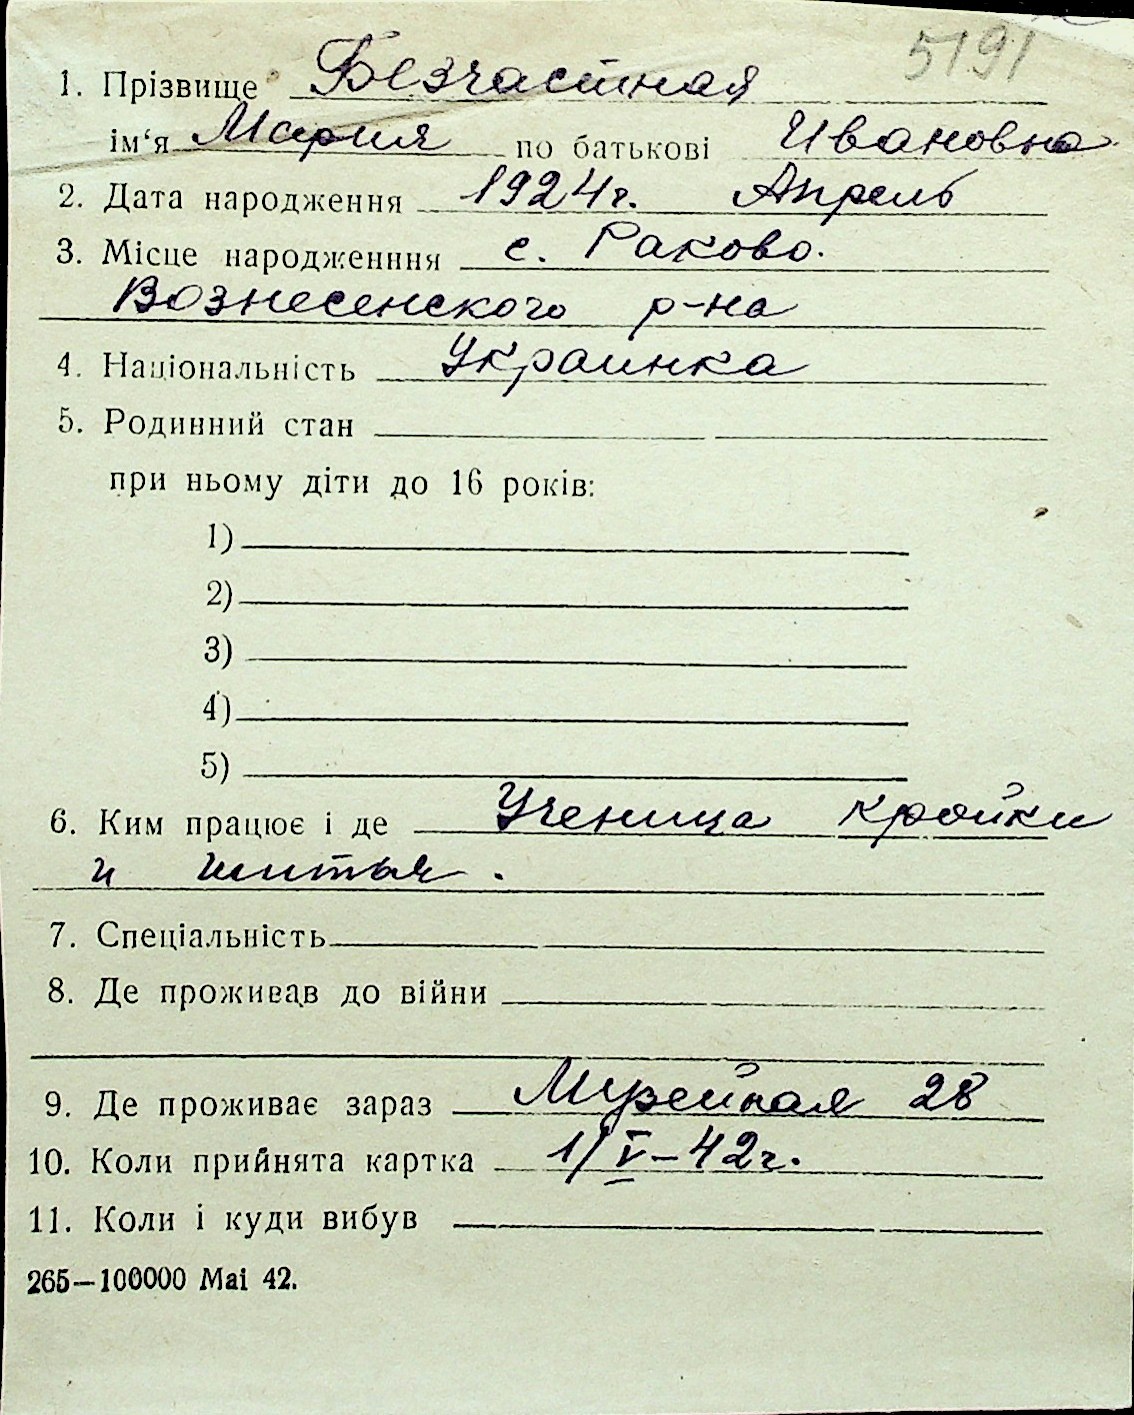 5191
1. Прізвище Безчастная
ім‘я Мария по батькові Ивановна
2. Дата народження 1924г. Апрель
3. Місце народженння с. Раково.
Вознесенского р-на
4. Національність Украинка
5. Родинний стан
при ньому діти до 16 років:
1)
2)
3)
4)
5)
6. Ким працює і де Ученица кройки
и шитья.
7. Спеціальність
8. Де проживав до війни
9. Де проживає зараз Музейная 28
10. Коли прийнята картка 1/V-42г.
11. Коли і куди вибув
265—100000 Mai 42.